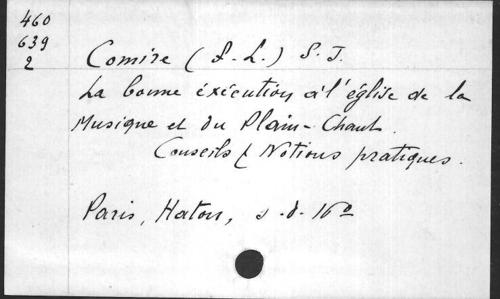 460
639
2
Comire (S.-L.) S. J.
La bonne éxécution à l'église de la
Musique et du Plain-Chant.
Conseils & Notions pratiques.
Paris, Haton, s.d. 16º